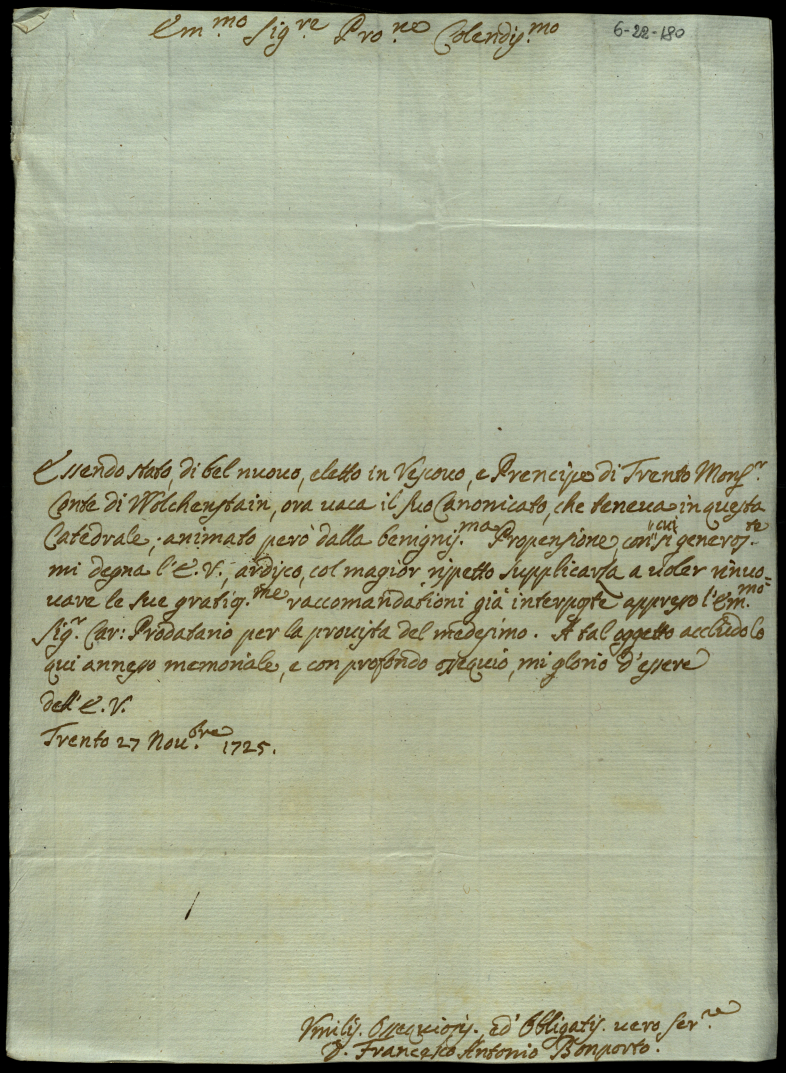 Em.mo Sig.re Pro.ne Colendis.mo
6-22-180
Essendo stato, di bel nuovo, eletto in Vescovo, e Prencipe di Trento Mons.r
Conte di Wolchenstain, ora vaca il suo Canonicato, che teneva in questa
Catedrale; animato però dalla benignis.ma Propensione, con cui si generos.te
mi degna l'E.V., ardisco, col magior rispetto supplicarla a voler rinuo=
uare le sue gratiss.me raccomandationi già interposte appresso l'Em.mo
Sig.r Car: Prodatario per la provista del medesimo. A tal oggetto accludolo
qui annesso memoriale, e con profondo ossequio, mi glorio d'essere
dell'E.V.
Trento 27 Nou.bre 1725.
Vmilis. Ossequiosis. ed' Obligatis. uero Ser.re
D. Francesco Antonio Bonporto.